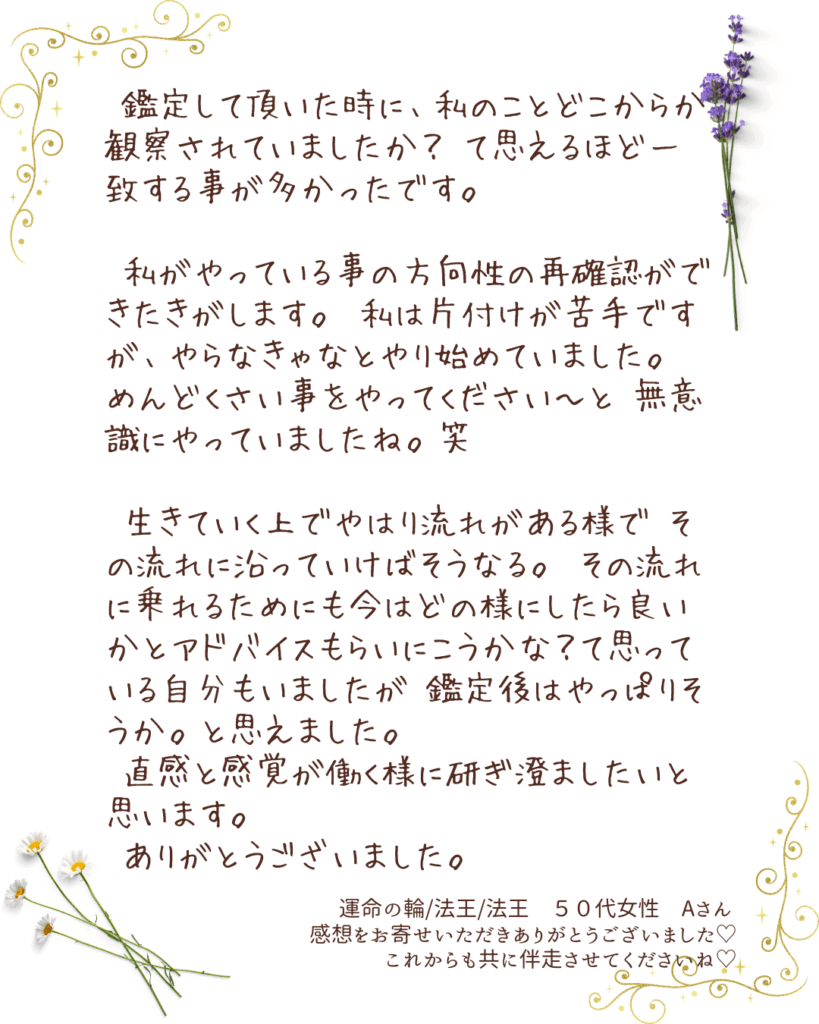 鑑定して頂いた時に、私のことどこからか
観察されていましたか？ て思えるほど一
致する事が多かったです。
私がやっている事の方向性の再確認がで
きたきがします。 私は片付けが苦手です
が、やらなきゃなとやり始めていました。
めんどくさい事をやってください〜と 無意
識にやっていましたね。笑
生きていく上でやはり流れがある様で そ
の流れに沿っていけばそうなる。 その流れ
に乗れるためにも今はどの様にしたら良い
かとアドバイスもらいにこうかな？て思って
いる自分もいましたが 鑑定後はやっぱりそ
うか。と思えました。
直感と感覚が働く様に研ぎ澄ましたいと
思います。
ありがとうございました。
運命の輪/法王/法王　５０代女性　Aさん
感想をお寄せいただきありがとうございました♡
これからも共に伴走させてくださいね♡